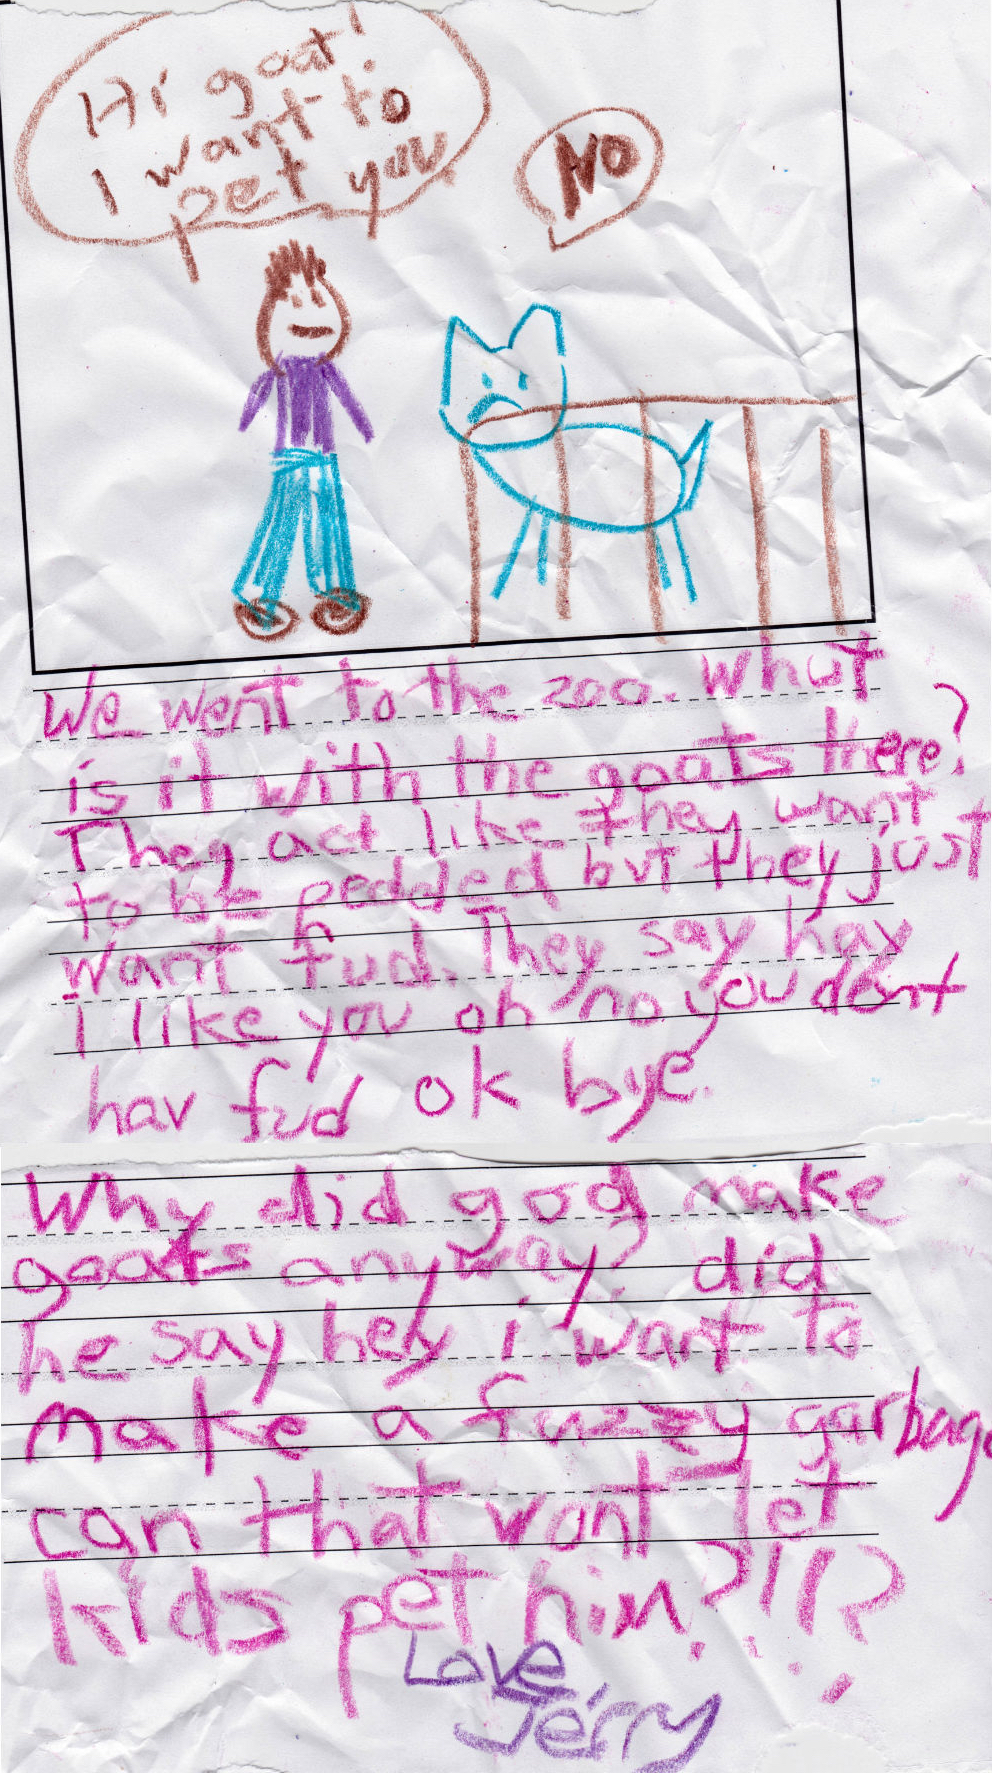 Hi goat!
I want to
pet you
NO
We went to the zoo. Whut
is it with the goats there?
They act like they want
to be pedded but they just
want fud. They say hay
I like you oh no you dont
hav fud ok bye.
Why did god make
goats anyway? did
he say hey i want to
make a fuzzy garbage
can that wont let
kids pet him?!!?
Love,
Jerry